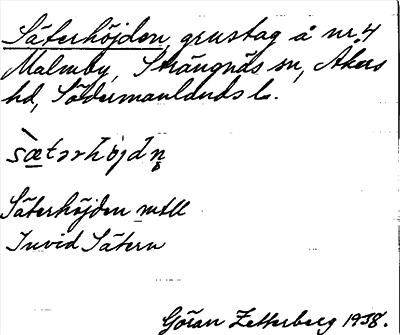 Säterhöjden grustag å nr. 4
Malmby, Strängnäs sn, Åkers
hd, Södermanlands l.
sætərhöjdn̥
Säterhöjden mtll
Invid Sätern
Göran Zetterberg 1938.